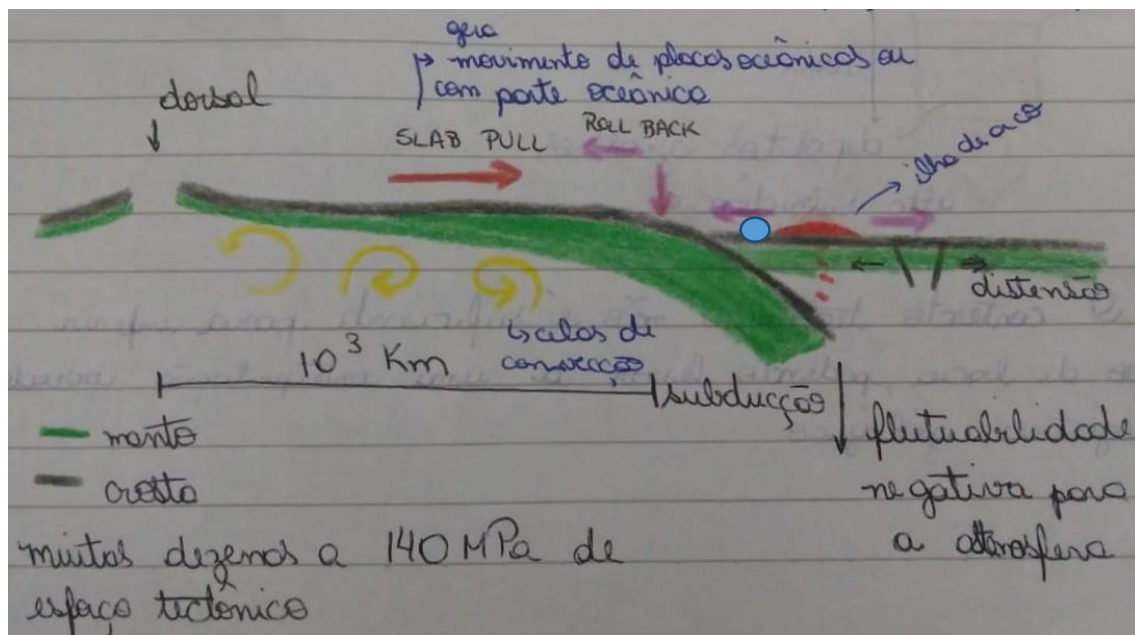 gera
movimento de placas oceânicas ou
com parte oceânica
dorsal
SLAB PULL
ROLL BACK
ilha de arco
distensão
10³ Km
células de
convecção
subducção
manto
crosta
flutuabilidade
negativa para
a atmosfera
muitas dezenas a 140 MPa de
esfaço tectônico